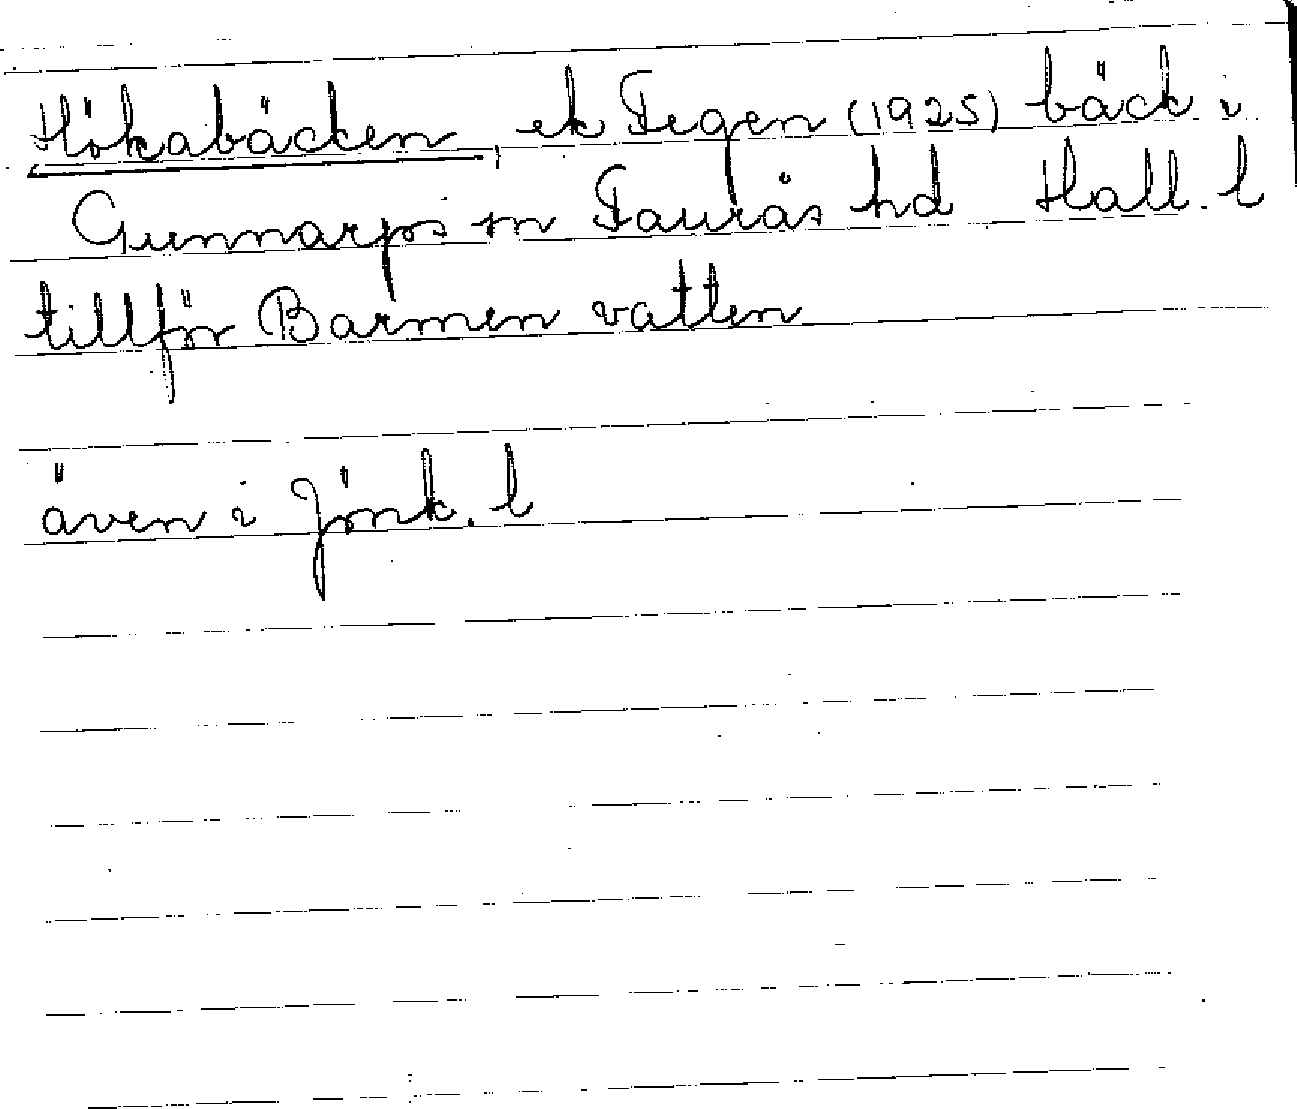 Hökabäcken, ek Fegen (1925) bäck i
Gunnarps sn Faurås hd Hall. l
tillför Barmen vatten
även i Jönk. l